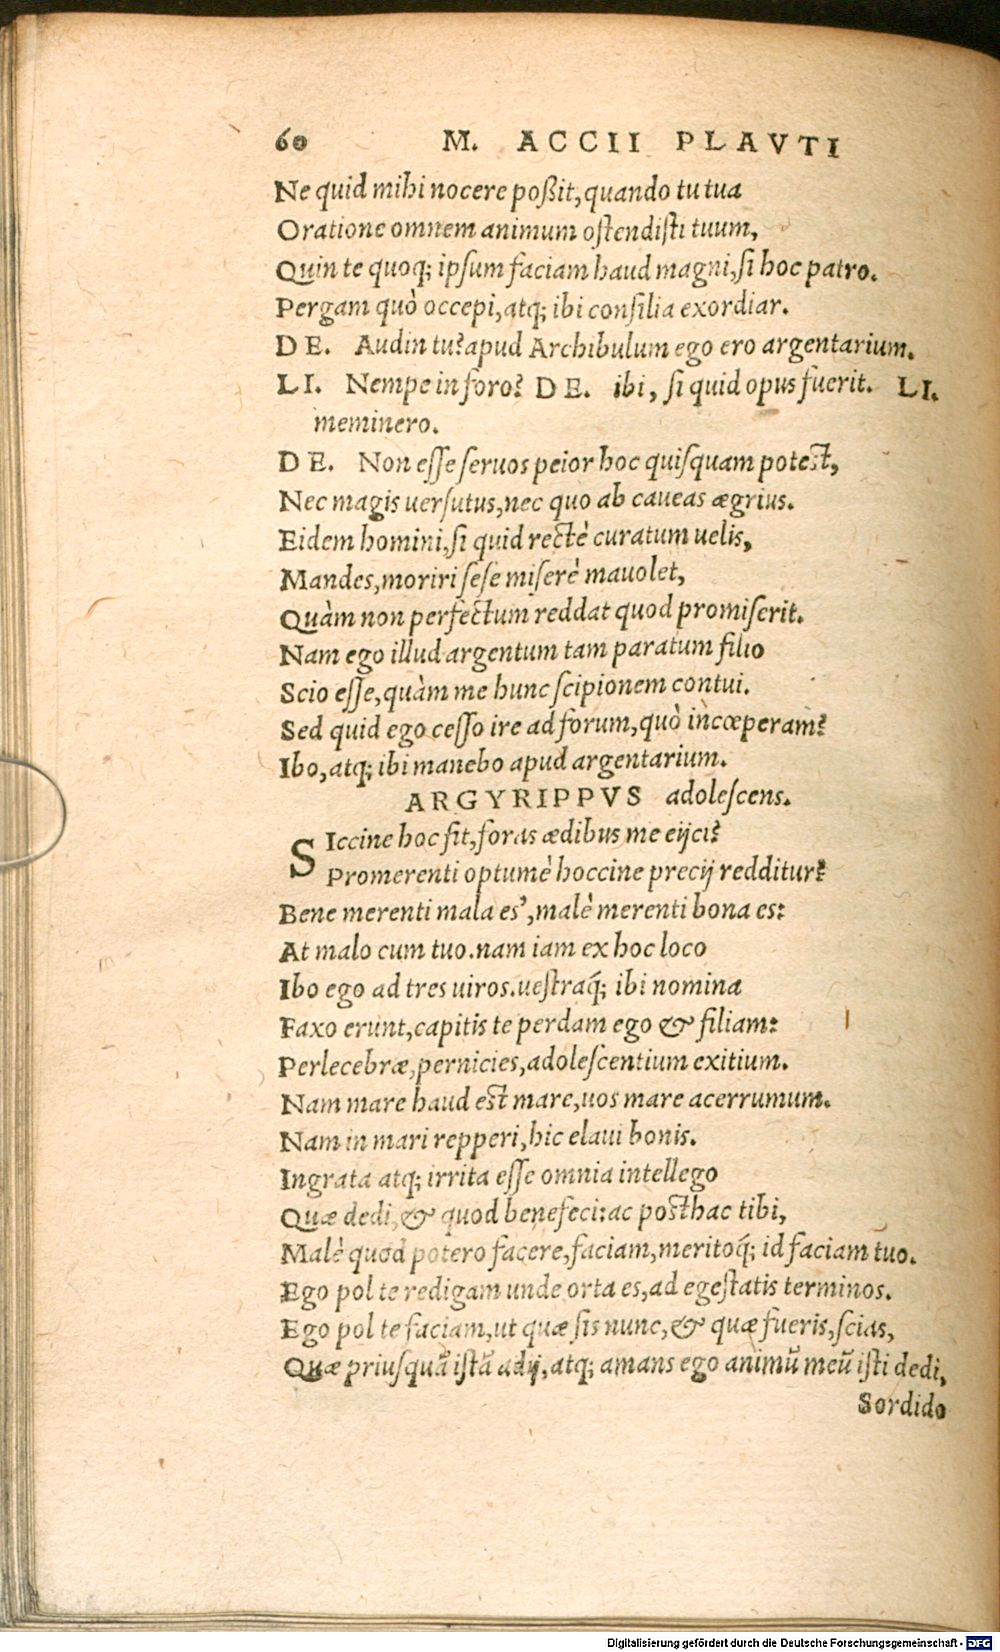 60 M. ACCII PLAVTI
Ne quid mihi nocere poßit, quando tu tua
Oratione omnem animum ostendisti tuum,
Quin te quoq; ipsum faciam haud magni, si hoc patro.
Pergam quò occepi, atq; ibi consilia exordiar.
DE. Audin tu? apud Archibulum ego ero argentarium.
LI. Nempe in foro? DE. ibi, si quid opus fuerit. LI.
meminero.
DE. Non esse seruos peior hoc quisquam potest,
Nec magis uersutus, nec quo ab caueas ægrius.
Eidem homini, si quid rectè curatum uelis,
Mandes, moriri sese miserè mauolet,
Quàm non perfectum reddat quod promiserit.
Nam ego illud argentum tam paratum filio
Scio esse, quàm me hunc scipionem contui.
Sed quid ego cesso ire ad forum, quò incœperam?
Ibo, atq; ibi manebo apud argentarium.
ARGYRIPPVS adolescens.
SIccine hoc fit, foras ædibus me eijci?
Promerenti optumè hoccine precij redditur?
Bene merenti mala es', malè merenti bona es:
At malo cum tuo. nam iam ex hoc loco
Ibo ego ad tres uiros. uestraq́; ibi nomina
Faxo erunt, capitis te perdam ego & filiam:
Perlecebræ, pernicies, adolescentium exitium.
Nam mare haud est mare, uos mare acerrumum.
Nam in mari repperi, hic elaui bonis.
Ingrata atq; irrita esse omnia intellego
Quæ dedi, & quod benefeci: ac posthac tibi,
Malè quod potero facere, faciam, meritoq́; id faciam tuo.
Ego pol te redigam unde orta es, ad egestatis terminos.
Ego pol te faciam, ut quæ sis nunc, & quæ fueris, scias,
Quæ priusquã istã adij, atq; amans ego animũ meũ isti dedi,
Sordido
Digitalisierung gefördert durch die Deutsche Forschungsgemeinschaft - DFG